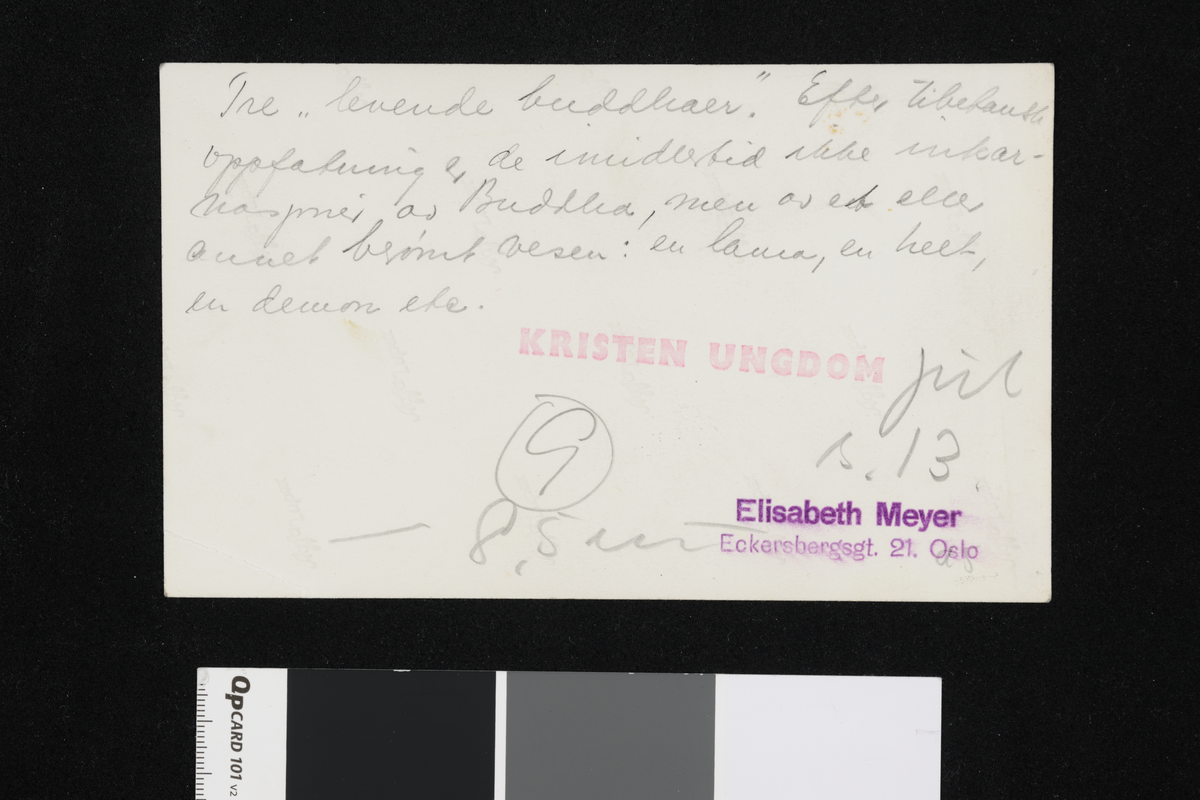 Tre „levende buddhaer." Efter tibetansk
oppfatning er de imidlertid ikke inkar-
nasjoner av Buddha, men av et eller
annet berømt vesen: en lama, en helt,
en demon etc.
KRISTEN UNGDOM jul
s. 13.
9
— 8,5 cm —
Elisabeth Meyer
Eckersbergsgt. 21. Oslo
QPCARD 101 v2